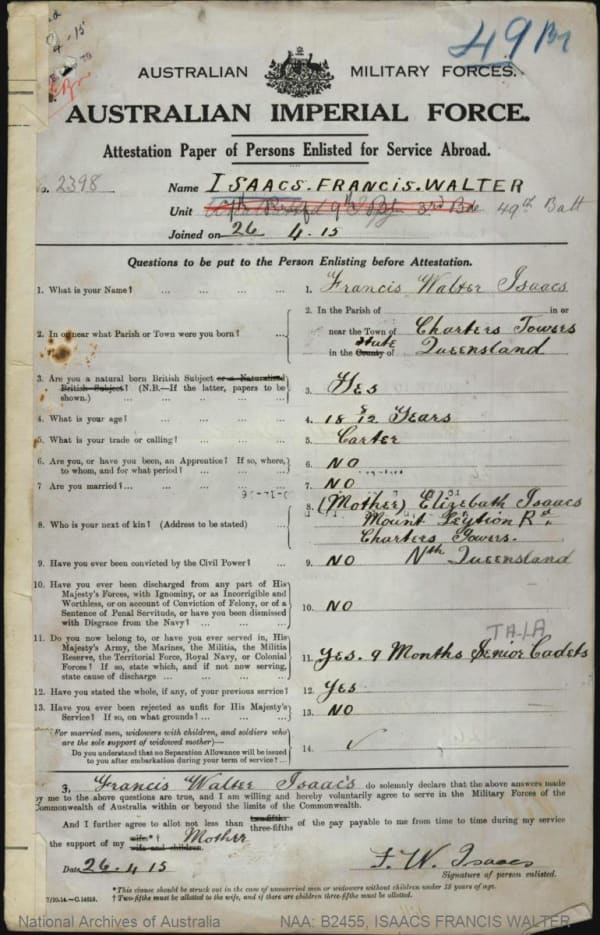 4-15
49 Bn
AUSTRALIAN MILITARY FORCES.
AUSTRALIAN IMPERIAL FORCE.
Attestation Paper of Persons Enlisted for Service Abroad.
No. 2398 Name ISAACS. FRANCIS. WALTER
Unit 9th 3rd Bde 49th Batt
Joined on 26 4. 15
Questions to be put to the Person Enlisting before Attestation.
1. What is your Name? ... ... ... ... 1. Francis Walter Isaacs
2. In or near what Parish or Town were you born? ... 2. In the Parish of in or
near the Town of Charters Towers
in the County of State Queensland
3. Are you a natural born British Subject or a Naturalized
British Subject? (N.B.—If the latter, papers to be
shown.) ... ... ... ... 3. Yes
4. What is your age? ... ... ... ... 4. 18 8/12 Years
5. What is your trade or calling? ... ... ... 5. Carter
6. Are you, or have you been, an Apprentice? If so, where,
to whom, and for what period? ... ... ... 6. NO
7 Are you married? ... ... ... ... 7. NO
8. Who is your next of kin? (Address to be stated) ... 8. (Mother) Elizebath Isaacs
Mount Leytion Rd.
Charters Towers.
Nth Queensland
9. Have you ever been convicted by the Civil Power? ... 9. NO
10. Have you ever been discharged from any part of His
Majesty's Forces, with Ignominy, or as Incorrigible and
Worthless, or on account of Conviction of Felony, or of a
Sentence of Penal Servitude, or have you been dismissed
with Disgrace from the Navy? ... ... ... 10. NO
11. Do you now belong to, or have you ever served in, His
Majesty's Army, the Marines, the Militia, the Militia
Reserve, the Territorial Force, Royal Navy, or Colonial
Forces? If so, state which, and if not now serving,
state cause of discharge ... ... ... ... 11. Yes. 9 Months Senior Cadets
12. Have you stated the whole, if any, of your previous service? 12. Yes
13. Have you ever been rejected as unfit for His Majesty's
Service? If so, on what grounds? ... ... ... 13. NO
For married men, widowers with children, and soldiers who
are the sole support of widowed mother)—
Do you understand that no Separation Allowance will be issued
to you after embarkation during your term of service? ... 14. ✓
I, Francis Walter Isaacs do solemnly declare that the above answers made
by me to the above questions are true, and I am willing and hereby voluntarily agree to serve in the Military Forces of the
Commonwealth of Australia within or beyond the limits of the Commonwealth.
And I further agree to allot not less than two-fifths three-fifths of the pay payable to me from time to time during my service
the support of my wife*† wife and children. Mother
Date 26. 4. 15 F. W. Isaacs
Signature of person enlisted.
*This clause should be struck out in the case of unmarried men or widowers without children under 18 years of age.
7/10.14.—C.14518. † Two-fifths must be allotted to the wife, and if there are children three-fifths must be allotted.
National Archives of Australia NAA: B2455, ISAACS FRANCIS WALTER